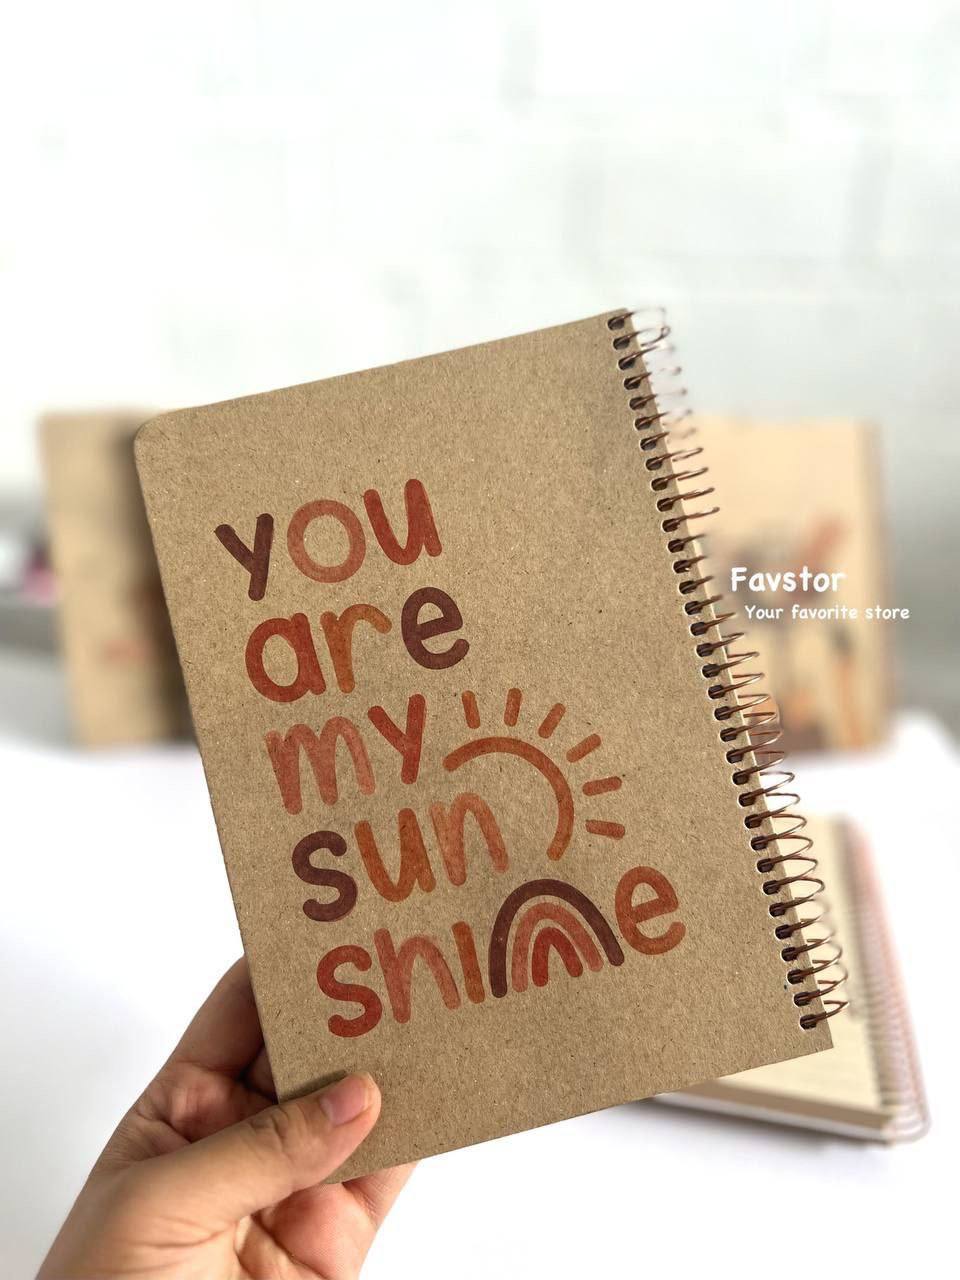 you
are
my
sun
shine
Favstor
Your favorite store